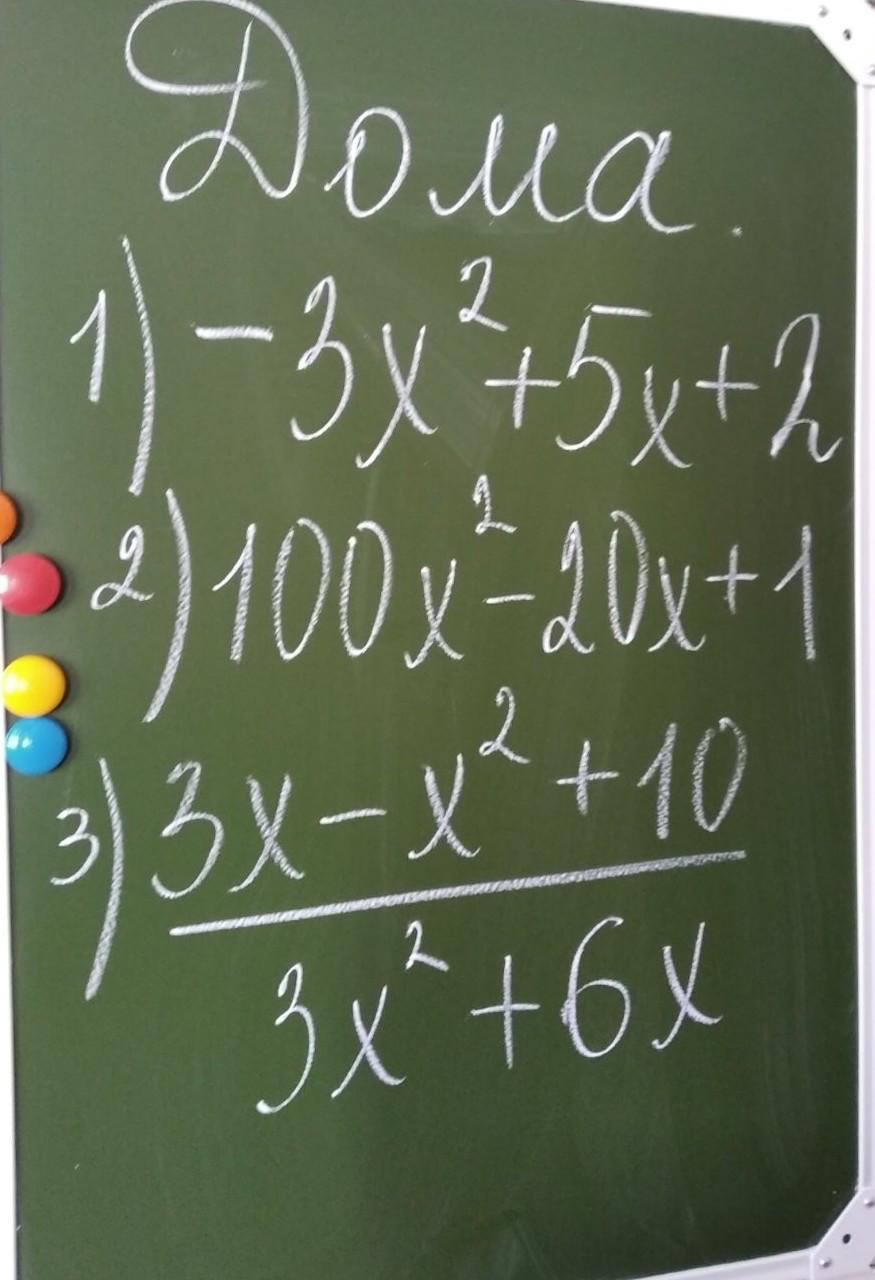 Дома.
1) -3x²+5x+2
2) 100x²-20x+1
3) 3x-x²+10
3x²+6x